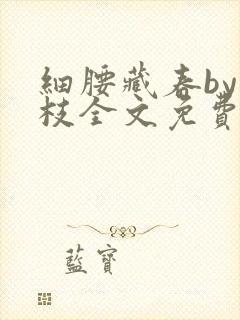 細腰藏春by
枝全文免費
藍寶